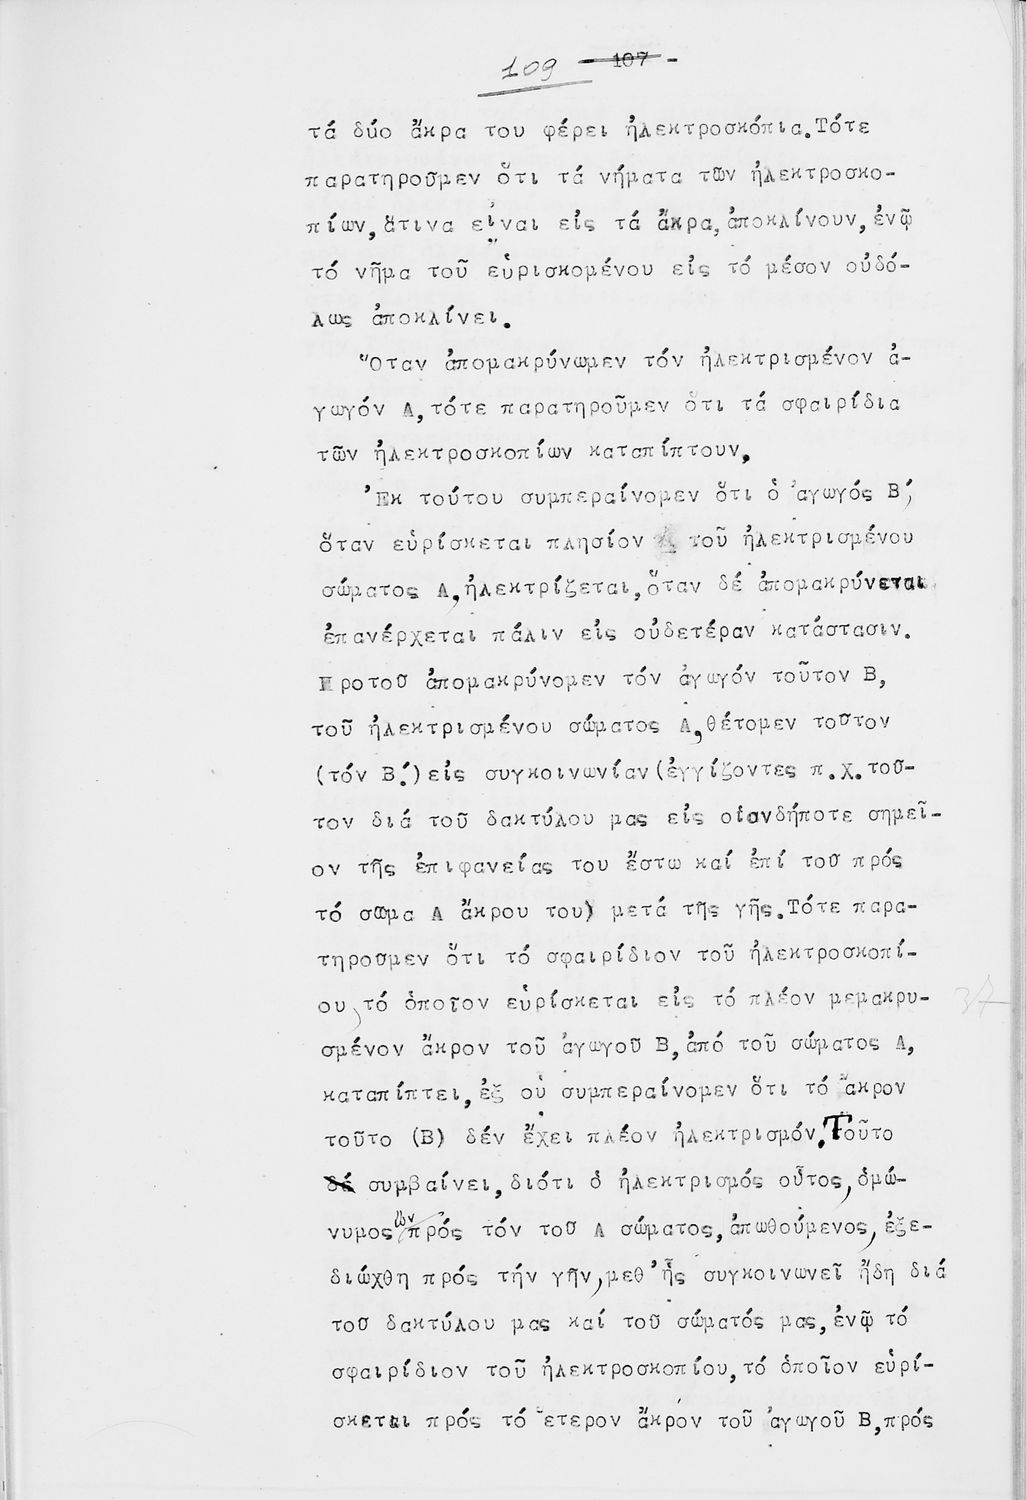 109 - 107 -
τά δύο ἄκρα του φέρει ἠλεκτροσκόπια.Τότε
παρατηροῦμεν ὅτι τά νήματα τῶν ἠλεκτροσκο-
πίων,ἅτινα εἶναι εἰς τά ἄκρα,ἀποκλίνουν,ἐνῷ
τό νῆμα τοῦ εὑρισκομένου εἰς τό μέσον οὐδό-
λως ἀποκλίνει.
Ὅταν ἀπομακρύνωμεν τόν ἠλεκτρισμένον ἀ-
γωγόν Α,τότε παρατηροῦμεν ὅτι τά σφαιρίδια
τῶν ἠλεκτροσκοπίων καταπίπτουν,
Ἐκ τούτου συμπεραίνομεν ὅτι ὁ ἀγωγός Β,
ὅταν εὑρίσκεται πλησίον τοῦ ἠλεκτρισμένου
σώματος Α,ἠλεκτρίζεται,ὅταν δέ ἀπομακρύνεται
ἐπανέρχεται πάλιν εἰς οὐδετέραν κατάστασιν.
Προτοῦ ἀπομακρύνομεν τόν ἀγωγόν τοῦτον Β,
τοῦ ἠλεκτρισμένου σώματος Α,θέτομεν τοῦτον
(τόν Β.)εἰς συγκοινωνίαν(ἐγγίζοντες π.χ.τοῦ-
τον διά τοῦ δακτύλου μας εἰς οἱανδήποτε σημεῖ-
ον τῆς ἐπιφανείας του ἔστω καί ἐπί τοῦ πρός
τό σῶμα Α ἄκρου του) μετά τῆς γῆς.Τότε παρα-
τηροῦμεν ὅτι τό σφαιρίδιον τοῦ ἠλεκτροσκοπί-
ου,τό ὁποῖον εὑρίσκεται εἰς τό πλέον μεμακρυ-
σμένον ἄκρον τοῦ ἀγωγοῦ Β,ἀπό τοῦ σώματος Α,
καταπίπτει,ἐξ οὗ συμπεραίνομεν ὅτι τό ἄκρον
τοῦτο (Β) δέν ἔχει πλέον ἠλεκτρισμόν.Τοῦτο
δέ συμβαίνει,διότι ὁ ἠλεκτρισμός οὗτος,ὁμώ-
νυμος ὤν πρός τόν τοῦ Α σώματος,ἀπωθούμενος,ἐξε-
διώχθη πρός τήν γῆν,μεθ'ἧς συγκοινωνεῖ ἤδη διά
τοῦ δακτύλου μας καί τοῦ σώματός μας,ἐνῷ τό
σφαιρίδιον τοῦ ἠλεκτροσκοπίου,τό ὁποῖον εὑρί-
σκεται πρός τό ἕτερον ἄκρον τοῦ ἀγωγοῦ Β,πρός